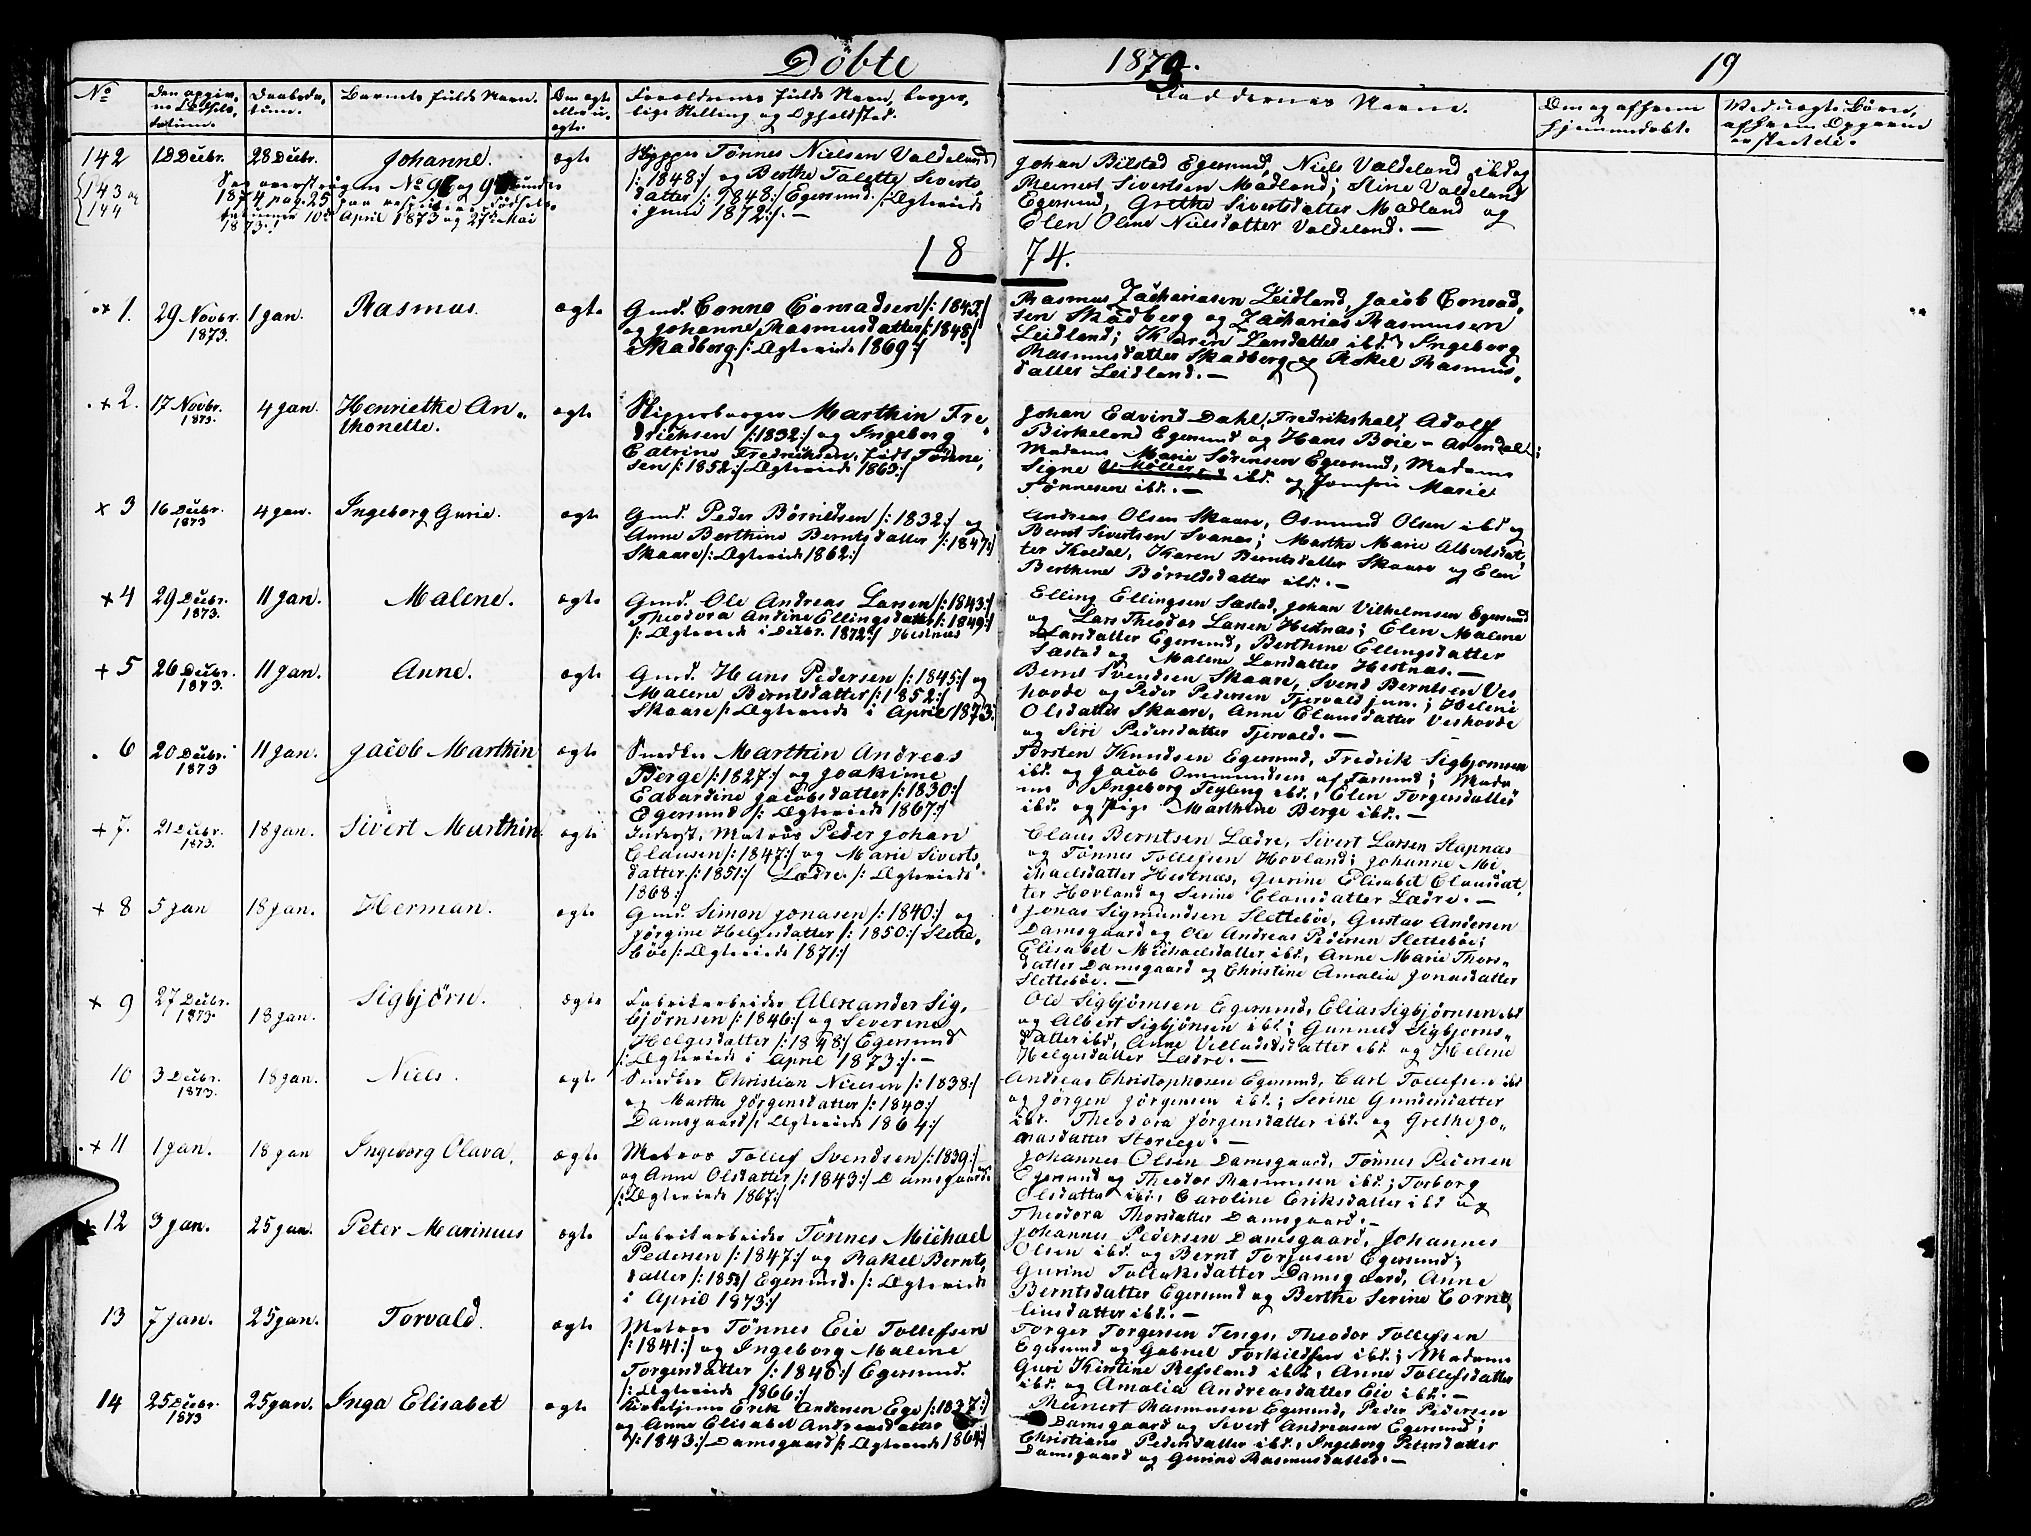 Döbte 1873. 19
No
Den opgivne Födselsdatum.
Daabsdatum.
Barnets fulde Navn.
Om ægte eller uægte.
Forældrenes fulde Navn, borgerlige Stilling og Opholdsted.
Faddernes Navne.
Om og af hvem hjemmedöbt.
Ved uægte Börn, af hvem Opgaven er skeet
142 12 Decbr. 28 Decbr. Johanne. ægte
Skipper Tönnes Nielsen Valdeland
/: 1848:/ og Berthe Talette Siverts
datter /: 1848:/ Egersund /: Ægteviede
i Juni 1872:/. —
Johan Bilstad Egersund, Niels Valdeland ibd og
Reinert Sivertsen Madland; Stine Valdeland
Egersund, Grethe Sivertsdatter Madland og
Elen Oline Nielsdatter Valdeland. —
143 og
144
1874 pag. 25
10de April 1873 og 27de Mai
1873.
1874.
× 1. 29 Novbr. 1873. 1 Jan. Rasmus. ægte
Gmd. Conno Conradsen /: 1843:/
og Johanne Rasmusdatter /: 1848:/
Skadberg /: Ægteviede 1869:/
Rasmus Zachariasen Leidland, Jacob Conrad
sen Skadberg og Zacharias Rasmusen
Leidland; Karen Larsdatter ibd. Ingeborg
Rasmusdatter Skadberg og Rakel Rasmus
datter Leidland. —
+ 2. 17 Novbr. 1873. 4 Jan. Henriette An-
thonette. ægte
Skipperborger Marthin Fre
driksen /: 1832:/ og Ingeborg
Catrine Fredriksen, født Tönne
sen /: 1852:/ Ægteviede 1863:/
Johan Edvind Dahl, Fredrikshald, Adolf
Birkeland Egersund og Hans Boie - Arendal;
Madame Marie Sörensen Egersund, Madame
Signe Möller ibd. og Jomfru Marie
Tönnesen ibd. —
× 3 16 Decbr. 1873 4 Jan. Ingeborg Gurie. ægte
Gmd. Peder Börildsen /: 1832:/ og
Anne Berthine Berntsdatter /: 1847:/
Skaare /: Ægteviede 1862:/
Andreas Olsen Skaare, Osmund Olsen ibd og
Bernt Sivertsen Svanes; Marthe Marie Albertsdat
ter Koldal, Karen Berntsdatter Skaare og Elen
Berthine Börildsdatter ibd. —
+ 4 29 Decbr. 1873. 11 Jan. Malene. ægte
Gmd. Ole Andreas Larsen /: 1843:/
Theodora Andine Ellingsdatter /: 1849:/
/: Ægteviede i Decbr. 1872:/ Hestnæs
Elling Ellingsen Sæstad, Johan Vilhelmsen Egersund
og Lars Theodor Larsen Hestnæs; Elen Malene
Larsdatter Egersund, Berthine Ellingsdatter
Sæstad og Malene Larsdatter Hestnæs. —
+ 5 26 Decbr. 1873. 11 Jan. Anne. ægte
Gmd. Hans Pedersen /: 1845:/ og
Malene Berntsdatter /: 1852:/
Skaare /: Ægteviede i April 1873:/
Bernt Svendsen Skaare, Svend Berntsen Ves
hovde og Peder Pedersen Tjervald jun.; Helene
Olsdatter Skaare, Anne Clausdatter Veshovde
og Siri Pedersdatter Tjervald. —
. 6 20 Decbr. 1873 11 Jan. Jacob Marthin ægte
Snedker Marthin Andreas
Berge /: 1827:/ og Joakime
Edvardine Jacobsdatter /: 1830:/
Egersund /: Ægteviede 1867:/
Torsten Knudsen Egersund, Fredrik Sigbjornsen
ibd. og Jacob Ommundsen af Farsund; Mada
me Ingeborg Feyling ibd., Elen Torgersdatter
ibd. og Pige Marthine Berge ibd. —
+ 7. 21 Decbr. 1873. 18 Jan. Sivert Marthin ægte
Inderst, Matros Peder Johan
Clausen /: 1847:/ og Marie Siverts
datter /: 1851:/ Lædre. /: Ægteviede
1868:/
Claus Berntsen Lædre, Sivert Larsen Stapnæs
og Tönnes Tollefsen Hovland; Johanne Mi
chaelsdatter Hestnæs, Gurine Elisabet Clausdat
ter Hovland og Serine Clausdatter Lædre. —
+ 8 5 Jan 18 Jan. Herman. ægte
Gmd. Simon Jonasen /: 1840:/ og
Jörgine Helgesdatter /: 1850:/ Slette
böe /: Ægteviede 1871:/
Jonas Sigmundsen Slettebøe, Gustav Andersen
Damsgaard og Ole Andreas Pedersen Slettebøe;
Elisabet Michaelsdatter ibd., Anne Marie Thors
datter Damsgaard og Christine Amalia Jonasdatter
Slettebøe. —
× 9 27 Decbr. 1873. 18 Jan. Sigbjörn. ægte
Fabrikarbeider Alexander Sig
bjørnsen /: 1846:/ og Severine
Helgesdatter /: 1848:/ Egersund
/: Ægteviede i April 1873:/. —
Ole Sigbjörnsen Egersund, Elias Sigbjørnsen ibd
og Albert Sigbjönsen ibd.; Gunneld Sigbjorns
datter ibd., Anne Villadsdatter ibd. og Helene
Helgesdatter Lædre. —
10 3 Decbr. 1873. 18 Jan. Niels. ægte
Snedker Christian Nielsen /: 1838:/
og Marthe Jörgensdatter /: 1840:/
Damsgaard /: Ægteviede 1864:/
Andreas Christophersen Egersund, Carl Tollefsen ibd
og Jörgen Jörgensen ibd.; Serine Gundersdatter
ibd. Theodora Jörgensdatter ibd. og Grethe Jo
nasdatter Storeege. —
.+ 11 1 Jan. 18 Jan Ingeborg Olava. ægte
Matros Tollef Svendsen /: 1839:/
og Anne Olsdatter /: 1843:/ Damsgaard.
/: Ægteviede 1867:/
Johannes Olsen Damsgaard, Tönnes Pedersen
Egersund og Theodor Rasmusen ibd.; Torborg
Olsdatter ibd., Caroline Eriksdatter ibd og
Theodora Thorsdatter Damsgaard. —
× 12 3 Jan. 25 Jan. Peter Marinius ægte
Fabrikarbeider Tönnes Michael
Pedersen /: 1847:/ og Rakel Bernts
datter /: 1853/ Egersund. /: Ægteviede
i April 1873:/
Johannes Pedersen Damsgaard, Johannes
Olsen ibd. og Bernt Torjusen Egersund;
Gurine Tolluksdatter Damsgaard, Anne
Berntsdatter Egersund og Berthe Serine Corne
liusdatter ibd. —
13 7 Jan. 25 Jan. Torvald. ægte
Matros Tönnes Eie Tollefsen
/: 1841:/ og Ingeborg Malene
Torgersdatter /: 1848:/ Egersund.
/: Ægteviede 1866:/
Torger Torgersen Tengs, Theodor Tollefsen
Egersund og Gabriel Torkildsen ibd.; Madame
Guri Kirstine Refsland ibd., Anne Tollefsdatter
ibd. og Amalia Andreasdatter Eie ibd. —
14 25 Decbr. 1873 25 Jan. Inga Elisabet ægte
Kirketjener Erik Andersen Ege /: 1837:/
og Anne Elisabet Andreasdatter
/: 1843:/ Damsgaard /: Ægteviede 1864:/
Reinert Rasmusen Egersund, Peder Pedersen
Damsgaard og Sivert Andreasen Egersund;
Christiane Pedersdatter ibd., Ingeborg Petersdatter
Damsgaard og Gurine Rasmusdatter. —